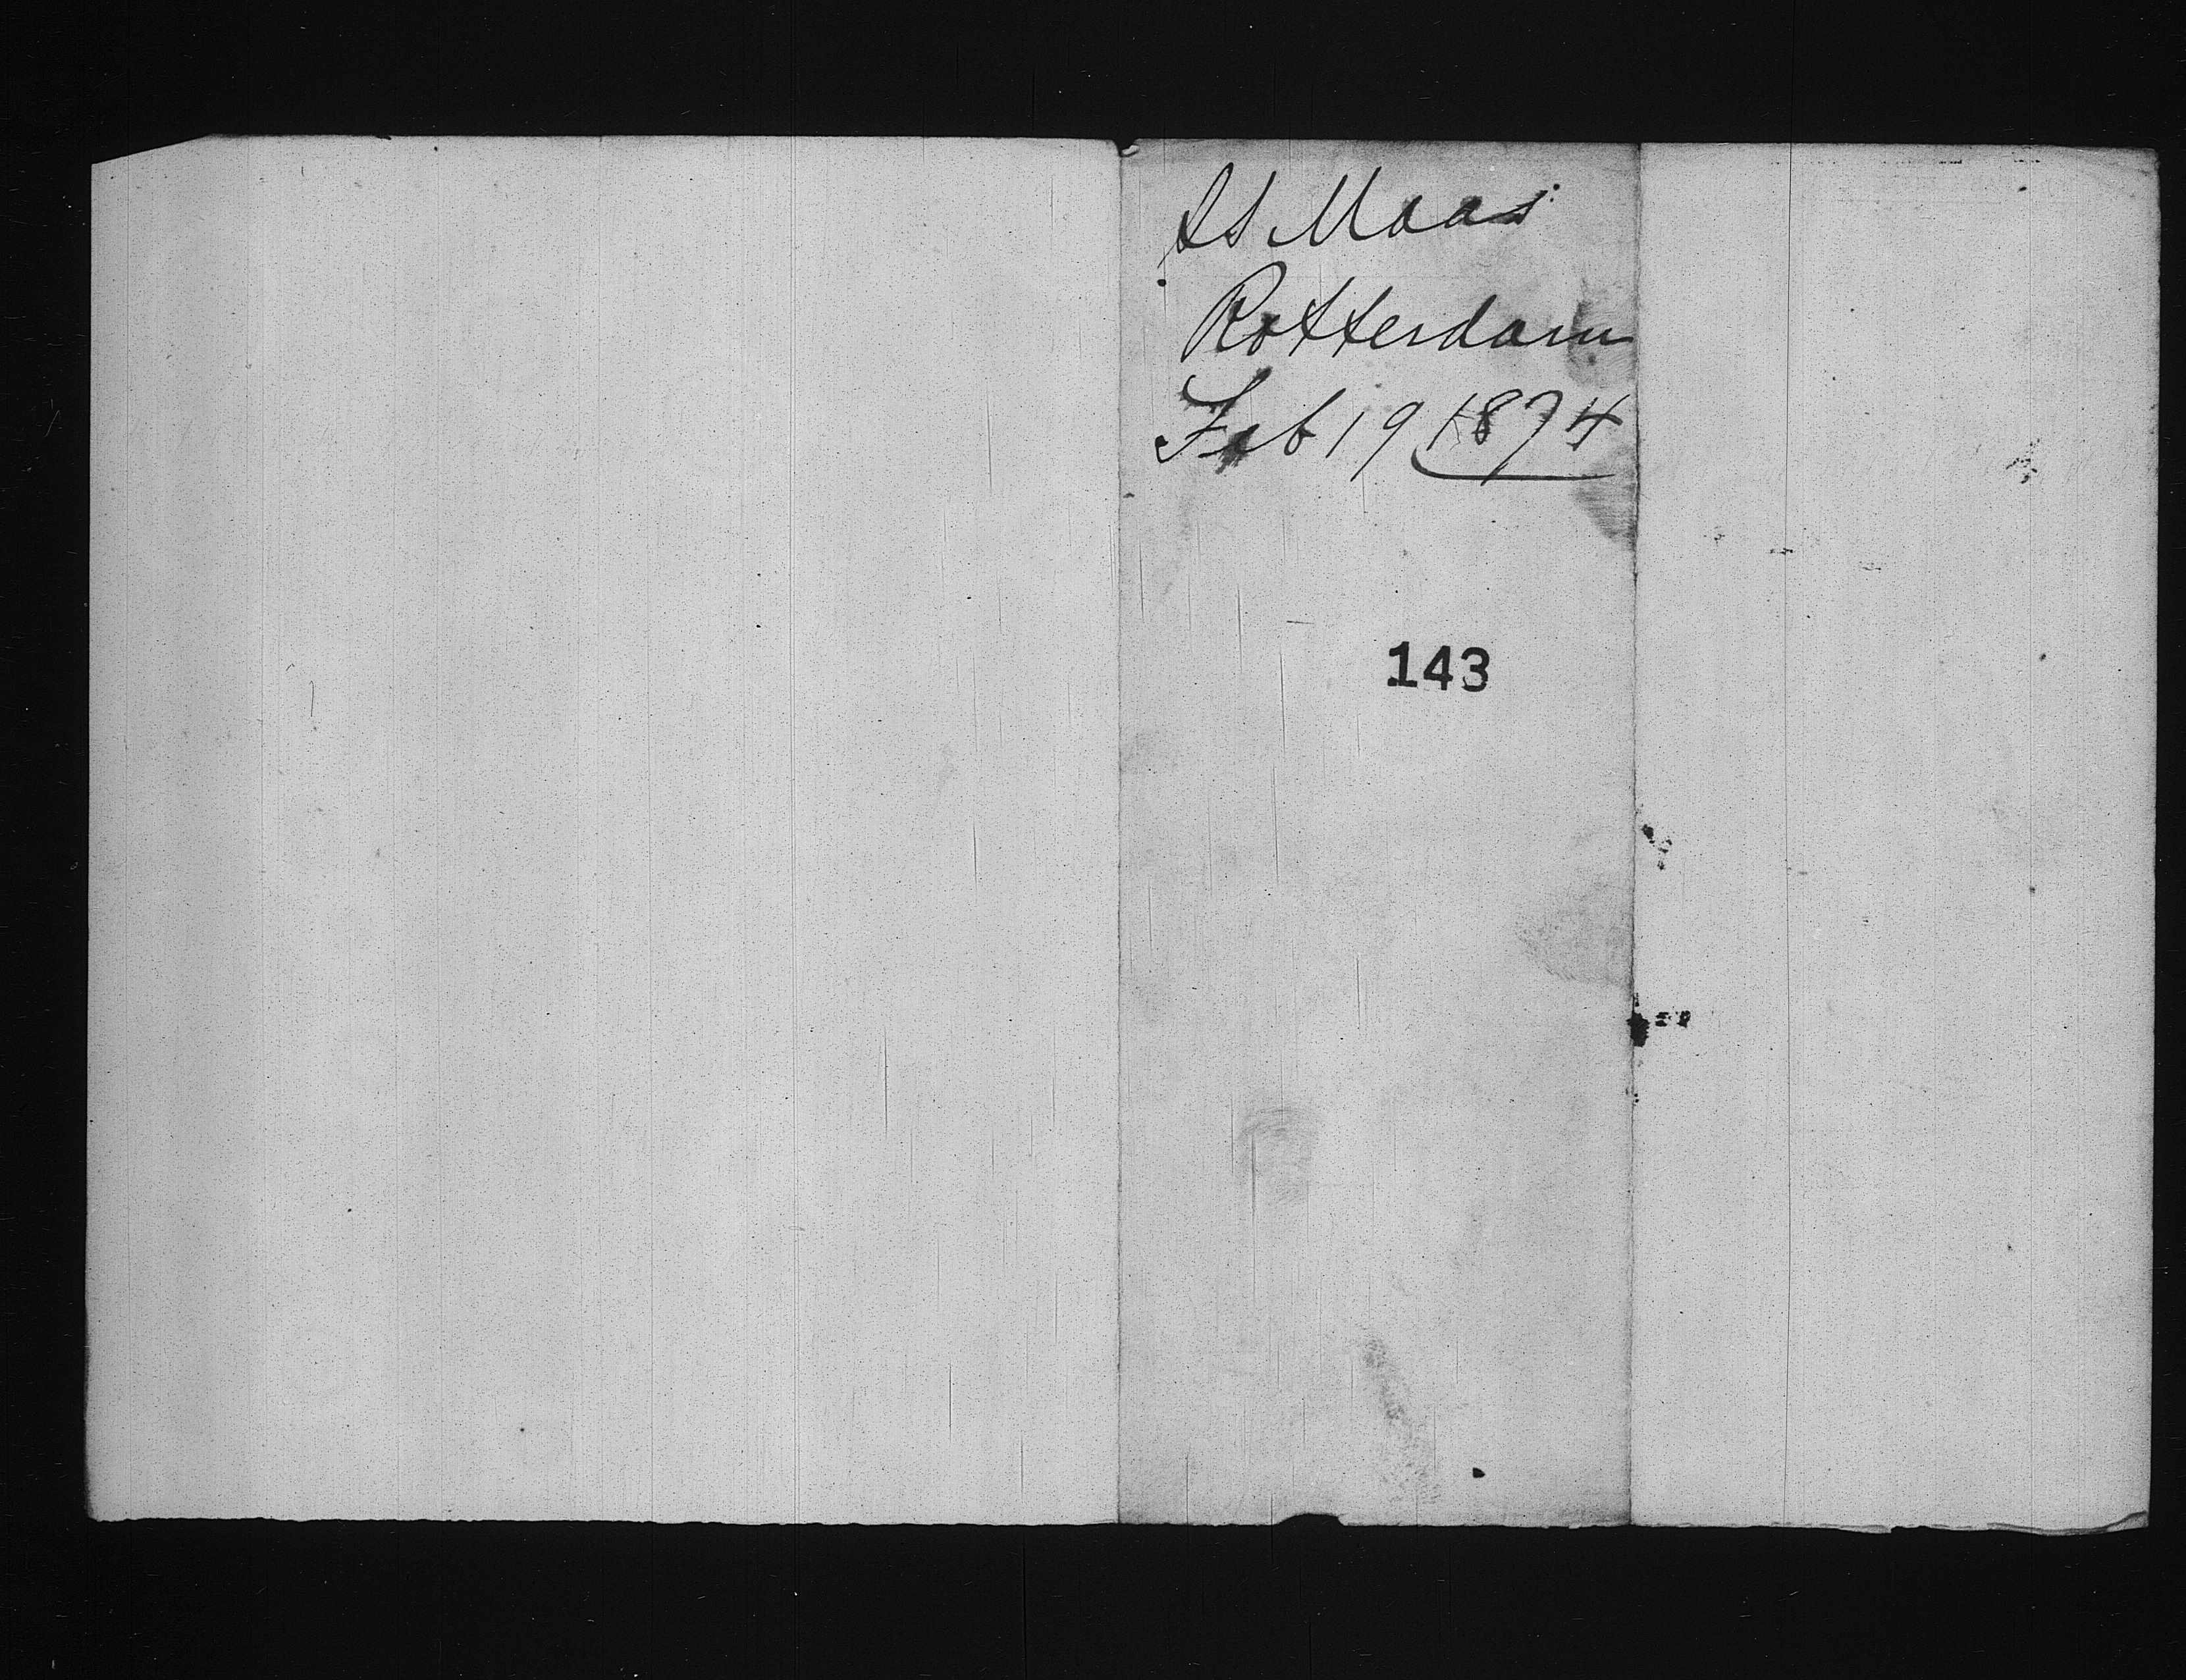 SS Maas
Rotterdam
Feb 19 1874
143